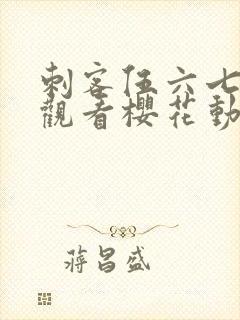 刺客伍六七
觀看櫻花動
蔣昌盛